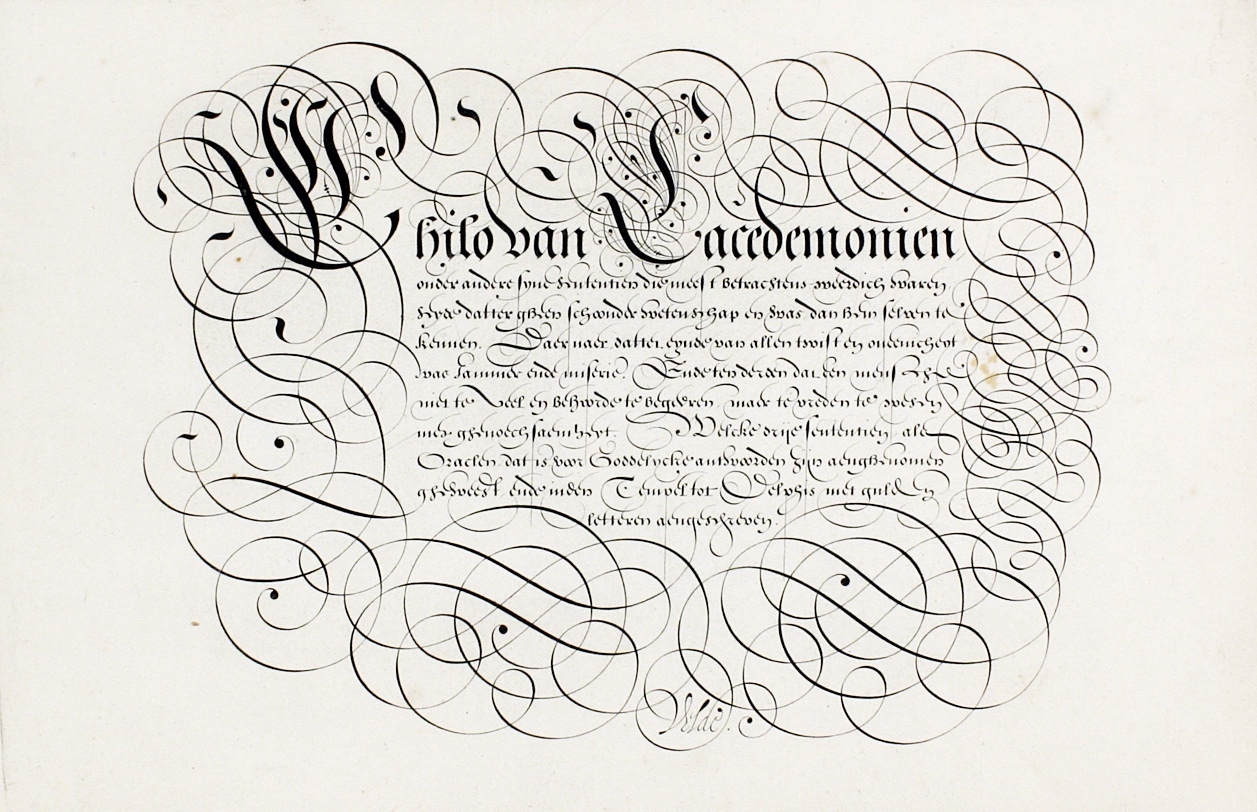 Chilo van Lacedemonien
onder andere syne Sententien die meest betrachtens weerdich waren,
datter gheen schoonder wetenschap en was dan hem selven te
kennen. Daer naer datter eynde van allen twist en oneenicheyt
was Jammer ende miserie. Ende ten derden dat den mensche
niet te veel en behoorde te begeeren, maer te vreden te wesen
met ghenoechsaemheyt. Welcke drije sententien, als
Oraclen, dat is, voor Goddelycke antwoorden zijn aenghenomen
gheweest, ende inden Tempel tot Delphis met gulden
letteren aengeschreven.
Velde.